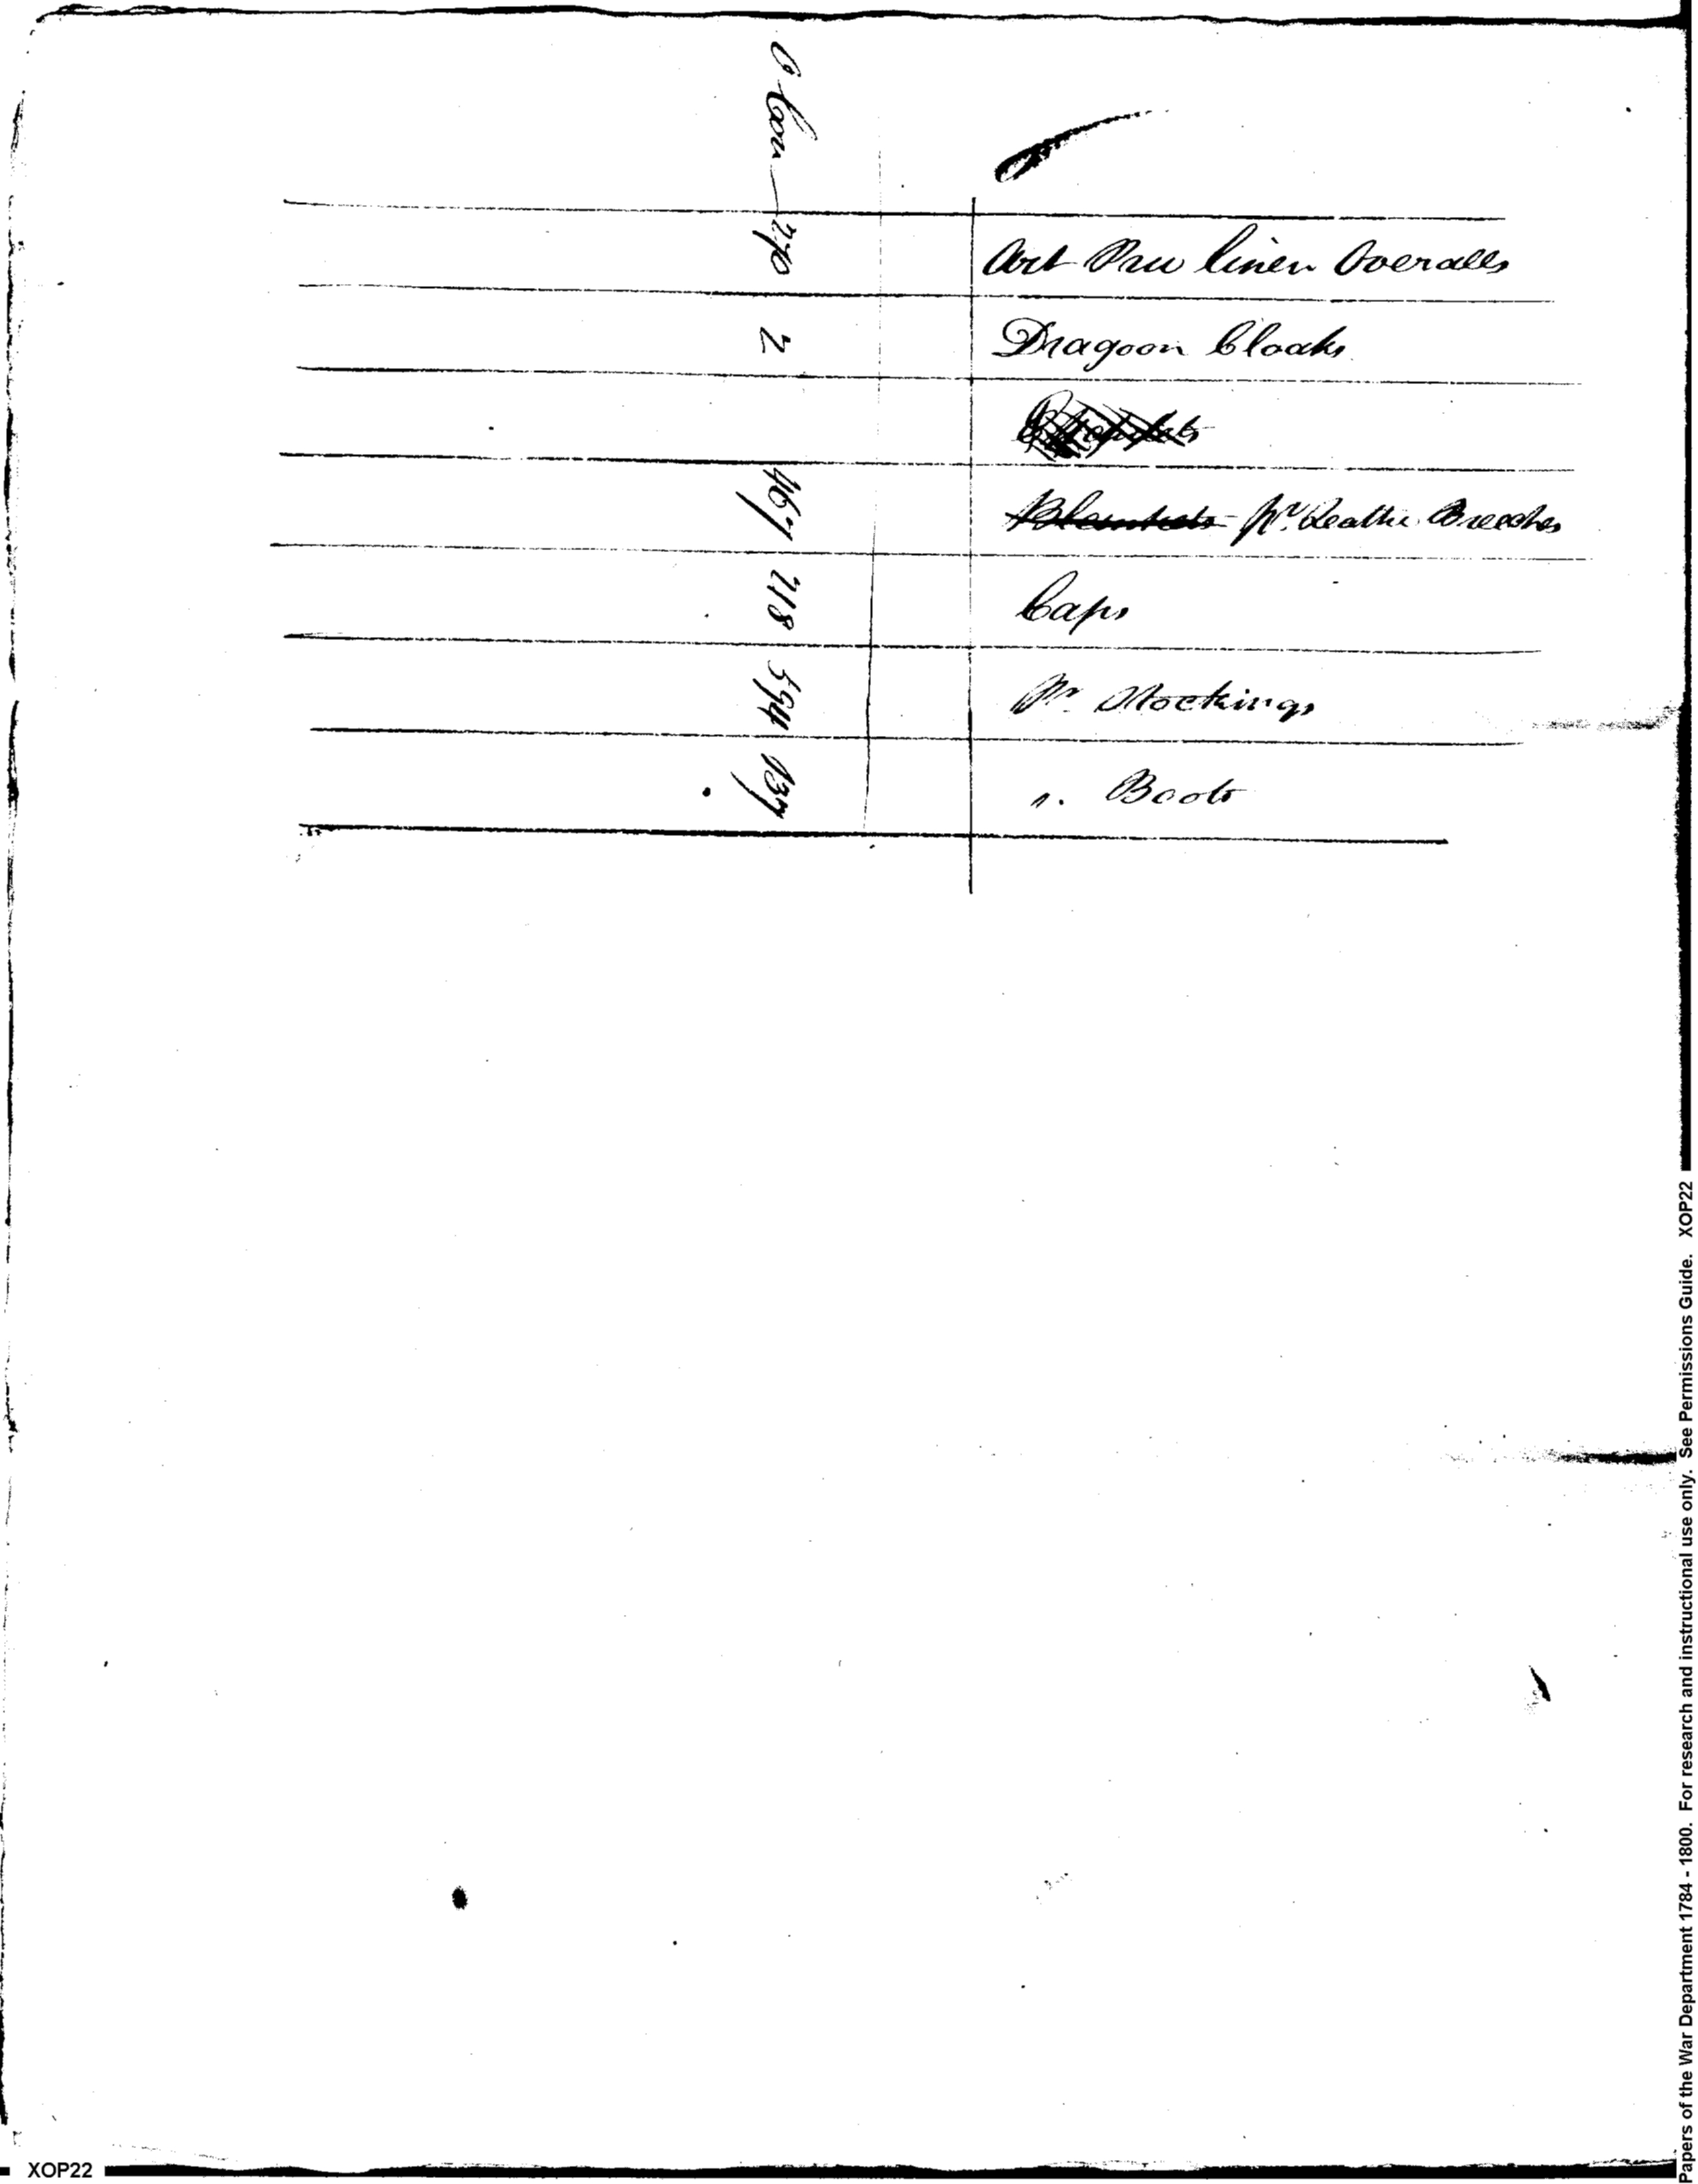 270 Art Pvu linen Overalls
2 Dragoon Cloaks
467 Blankets pr. Leathr. Breeches
218 Caps
594 Pr. Stockings
137 ". Boots
Papers of the War Department 1784 - 1800. For research and instructional use only. See Permissions Guide. XOP22
XOP22